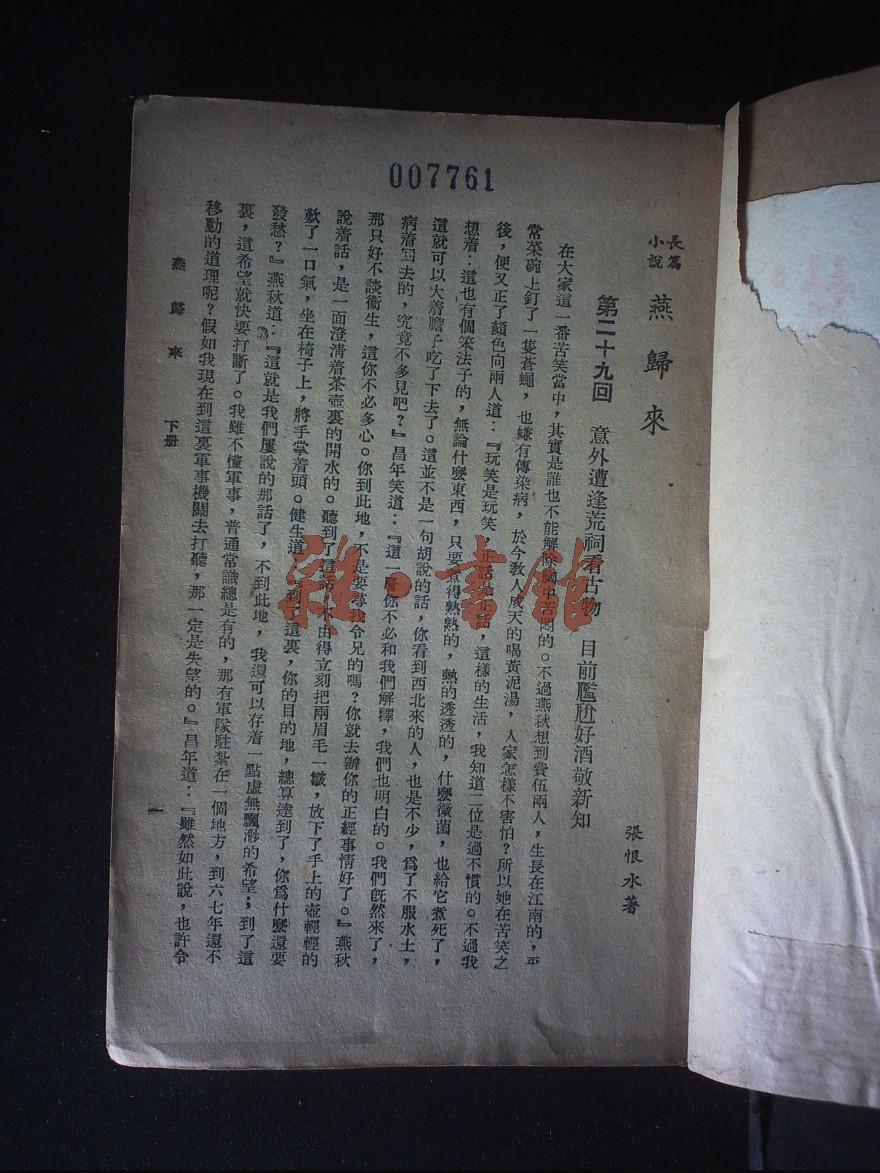 007761
長篇小說
燕歸來
張恨水著
第二十九回　意外遭逢荒祠看古物　目前尷尬好酒敬新知
在大家這一番苦笑當中，其實是誰也不能解除胸中苦悶的。不過燕秋想到費伍兩人，生長在江南的，平
常菜碗上釘了一隻蒼蠅，也嫌有傳染病，於今教人成天的喝黃泥湯，人家怎樣不害怕？所以她在苦笑之
後，便又正了顏色向兩人道：『玩笑是玩笑，正話是正話，這樣的生活，我知道二位是過不慣的。不過我
想着：這也有個笨法子的，無論什麼東西，只要煮得熟熟的，熱的透透的，什麼黴菌，也給它煮死了，
這就可以大着膽子吃了下去了。這並不是一句胡說的話，你看到西北來的人，也是不少，爲了不服水土，
病着回去的，究竟不多見吧？』昌年笑道：『這一層你不必和我們解釋，我們也明白的。我們既然來了，
那只好不談衛生，這你不必多心。你到此地，不是要尋找令兄的嗎？你就去辦你的正經事情好了。』燕秋
說着話，是一面澄清着茶壺裏的開水的。聽到了這話，不由得立刻把兩眉毛一皺，放下了手上的壺輕輕的
歎了一口氣，坐在椅子上，將手掌着頭。健生道：到了這裏，你的目的地，總算達到了，你爲什麼還要
發愁？』燕秋道：『這就是我們屢說的那話了，不到此地，我還可以存着一點虛無飄渺的希望；到了這
裏，這希望就快要打斷了。我雖不懂軍事，普通常識總是有的，那有軍隊駐紮在一個地方，到六七年還不
移動的道理呢？假如我現在到這裏軍事機關去打聽，那一定是失望的。』昌年道：『雖然如此說，也許令
燕歸來　下册
一
雜·書館